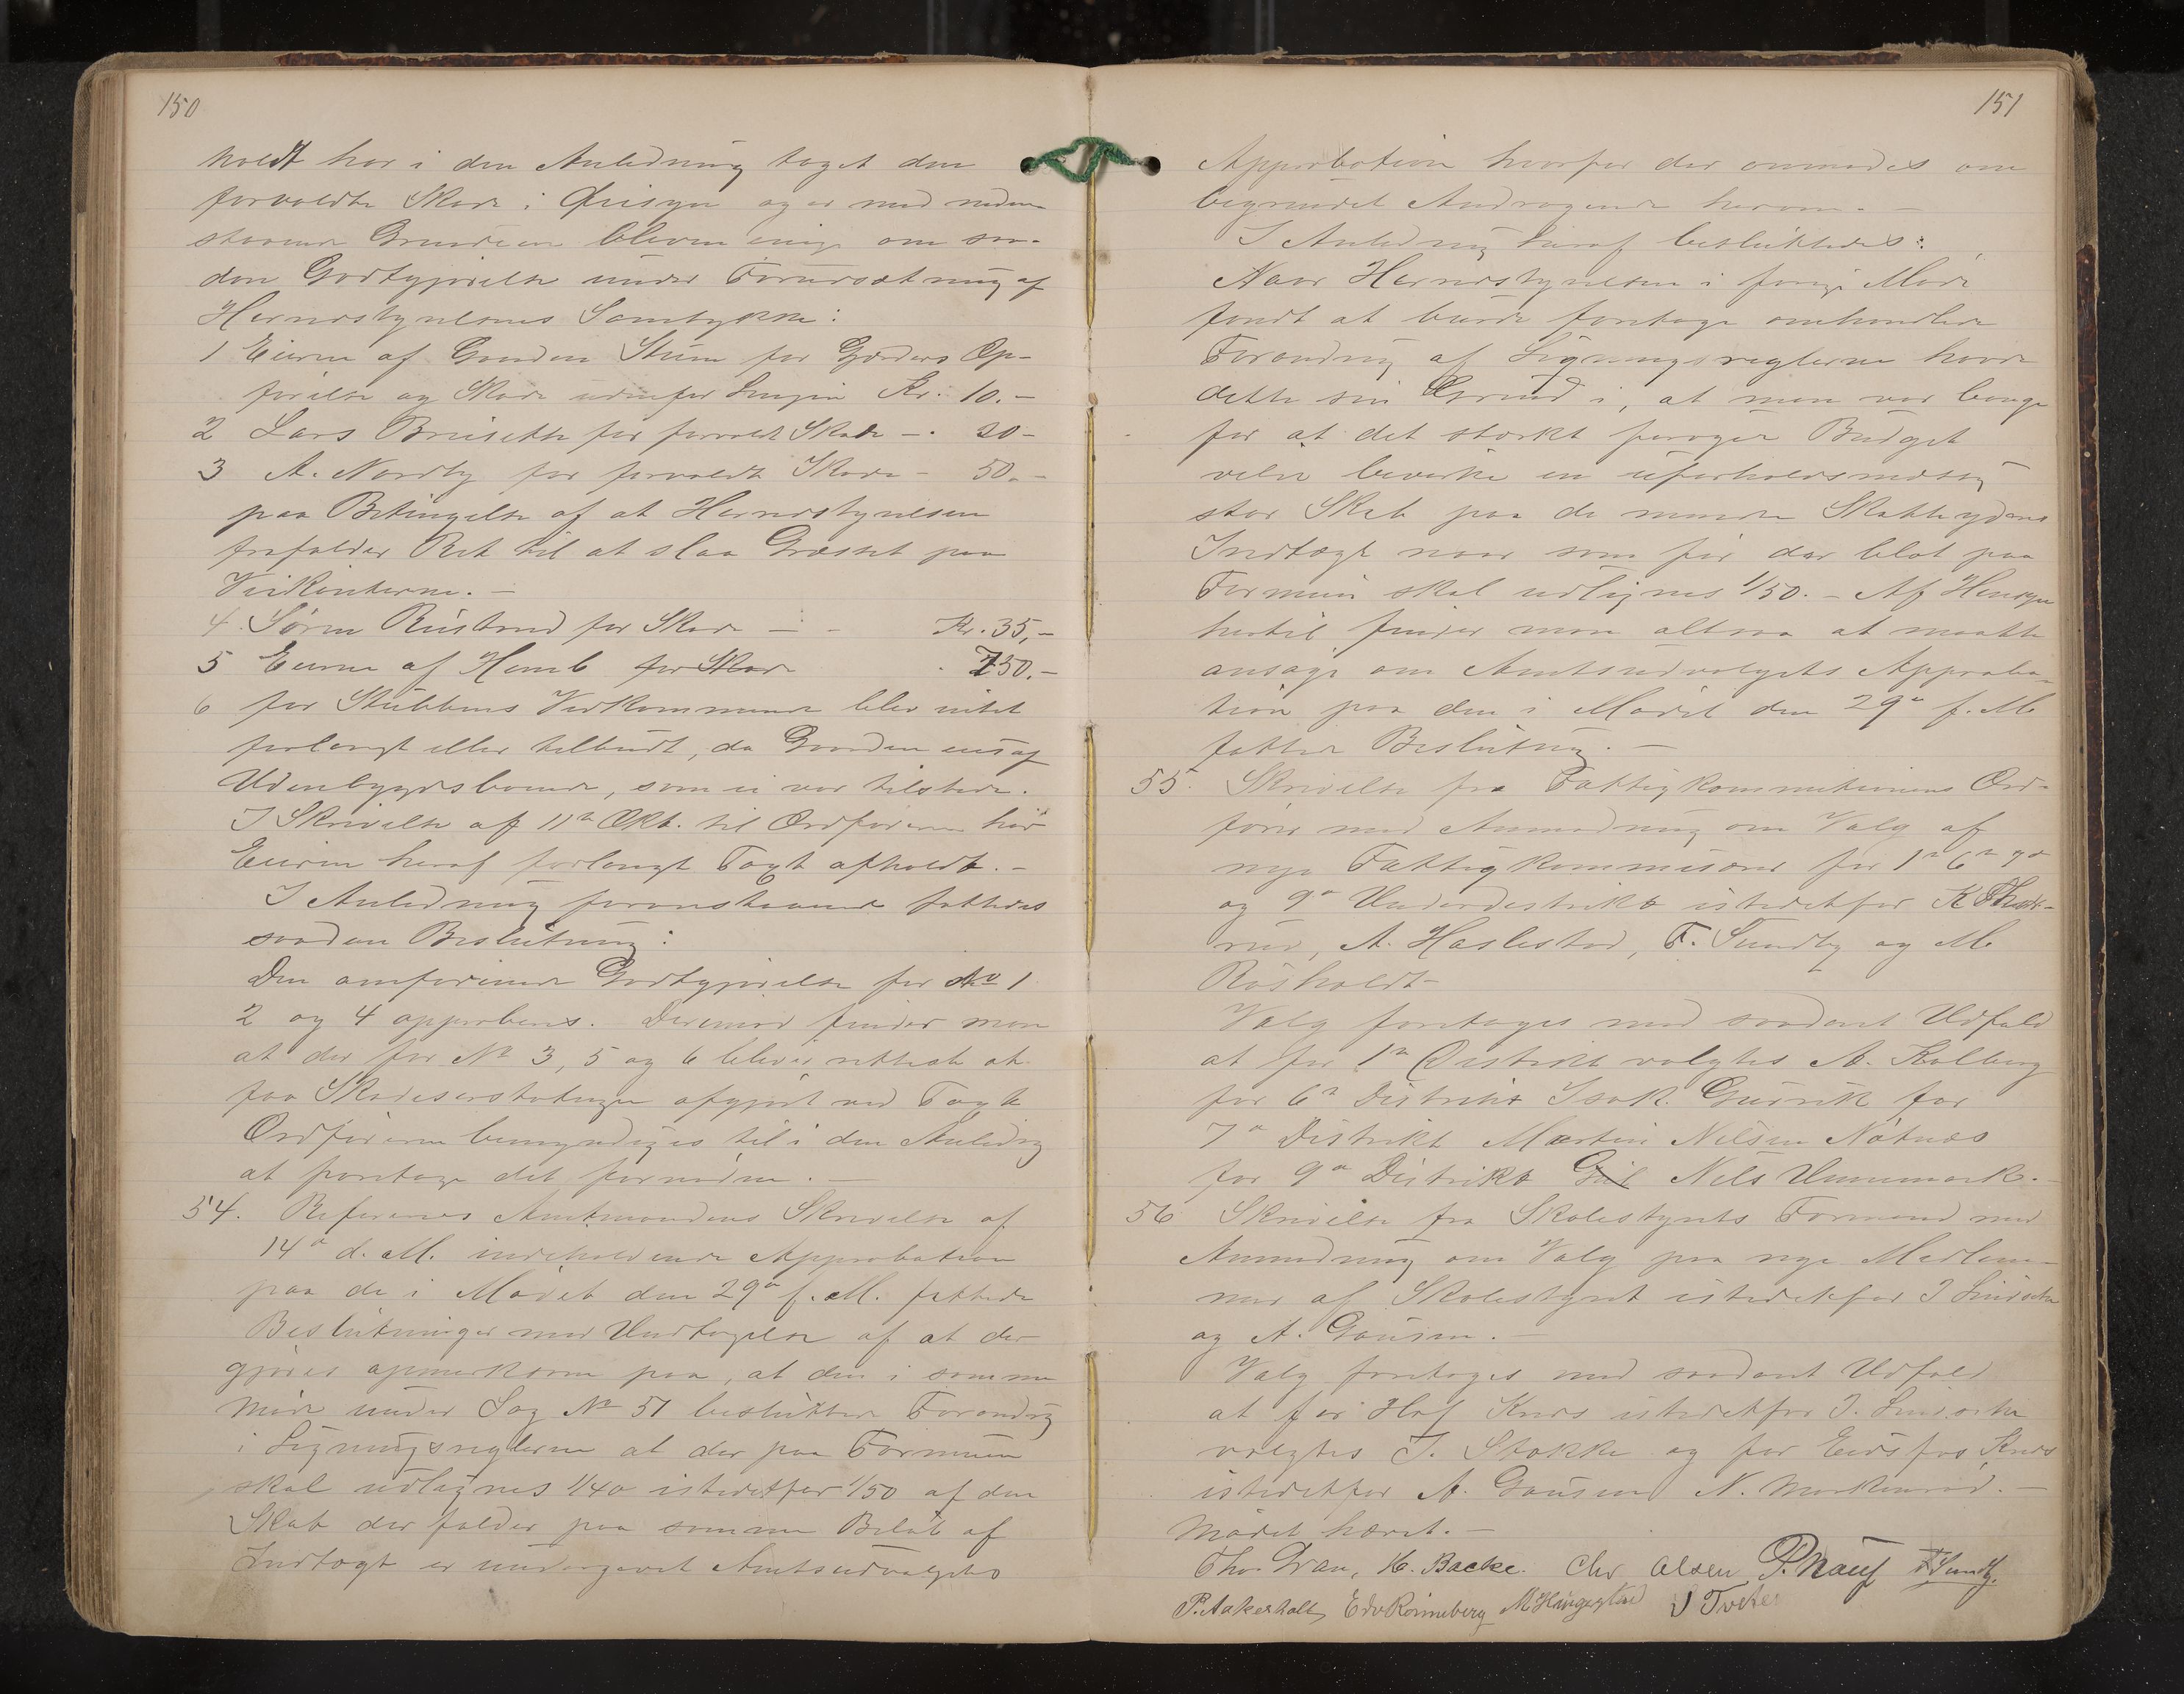 150
holdt har i den Anledning taget den
forvoldte Skade i Øiesyn og er med neden-
staaende Grundeiere bleven enige om saa-
dan Godtgjørelse under Forudsætning af
Herredstyrelsens Samtykke:
1 Eieren af Gaarden Steen for Gjærders Op-
førelse og Skade udenfor Linjen Kr. 10.-
2 Lars Bruserke for forvoldt Skade -. 20-
3 A. Nordby for forvoldt Skade - 50.-
paa Betingelse af at Herredstyrelsen
frafalder Ret til at slaa Græsset paa
Veikanterne.-
4. Søren Rustand for Skade - - Kr. 35,-
5 Eieren af Hemb for Skade . 750.-
6 for Stubbens Vedkommende blev intet
forlangt eller tilbudt, da Gaarden eies af
Udenbygdsboende, som ei var tilstede.
I Skrivelse af 11te Okt. til Ordføreren har
Eieren heraf forlangt Taxt afholdt.-
I Anledning foranstaaende fattedes
saadan Beslutning:
Den omførende Godtgjørelse for No 1
2 og 4 approberes. Derimod finder man
at der for No 3, 5 og 6 bliver rettest at
faa Skadeserstatningen afgjort ved Taxt
Ordføreren bemyndiges til i den Anledng
at foretage det fornødne.-
54. Refereres Amtmandens Skrivelse af
14de d. M. indeholdende Approbation
paa de i Mødet den 29de f. M. fattede
Beslutninger med Undtagelse af at der
gjøres opmerksom paa, at den i samme
Møde under Sag No 51 besluttede Forandrg
i Ligningsreglerne at der paa Formuen
skal udlignes 1/40 istedetfor 1/50 af den
Skat der falder paa samme Beløb af
Indtægt er undergivet Amtsudvalgets
151
Approbation hvorfor der anmodes om
begrundet Andragende herom.-
I Anledning heraf besluttedes:
Naar Herredstyrelsen i forrige Møde
fandt at burde foretage omhandlede
Forandring af Ligningsreglerne havde
dette sin Grund i, at man var bange
for at det stærkt forøgede Budget
vilde bevirke en uforholdsmæssig
stor Skat paa de mindre Skatteyderes
Indtægt naar som før der blot paa
Formuen skal udlignes 1/50.- Af Hensyn
hertil finder man altsaa at maatte
ansøge om Amtsudvalgets Approba-
tion paa den i Mødet den 29de f. M.
fattede Beslutning.-
55. Skrivelse fra Fattigkommissionens Ord-
fører med Anmodning om Valg af
nye Fattigkommisærer for 1ste 6te 7de
og 9de Underdistrikt istedetfor K
rud, A. Haslestad, F. Sundby og M.
Røsholdt-
Valg foretages med saadant Udfald
at for 1ste Distrikt valgtes A. Kolberg
for 6te Distrikt Isak Gusrik for
7de Distrikt Martin Nilsen Nøtnæs
for 9de Distrikt Nils Unnemark.-
56 Skrivelse fra Skolestyrets Formand med
Anmodning om Valg paa nye Medlem-
mer af Skolestyret istedetfor I
og A. Gausen.-
Valg foretages med saadant Udfald
at for Hof Kreds istedetfor I.
valgtes J. Stokke og for Eidsfos Kreds
istedetfor A. Gausen N. Markerud.-
Mødet hævet.-
Thor Dran, H. Backe. Chr Olsen P. Nauf F Sundby.
P. Aakerholt, Edv Ronneberg M Haugestad J Tveten